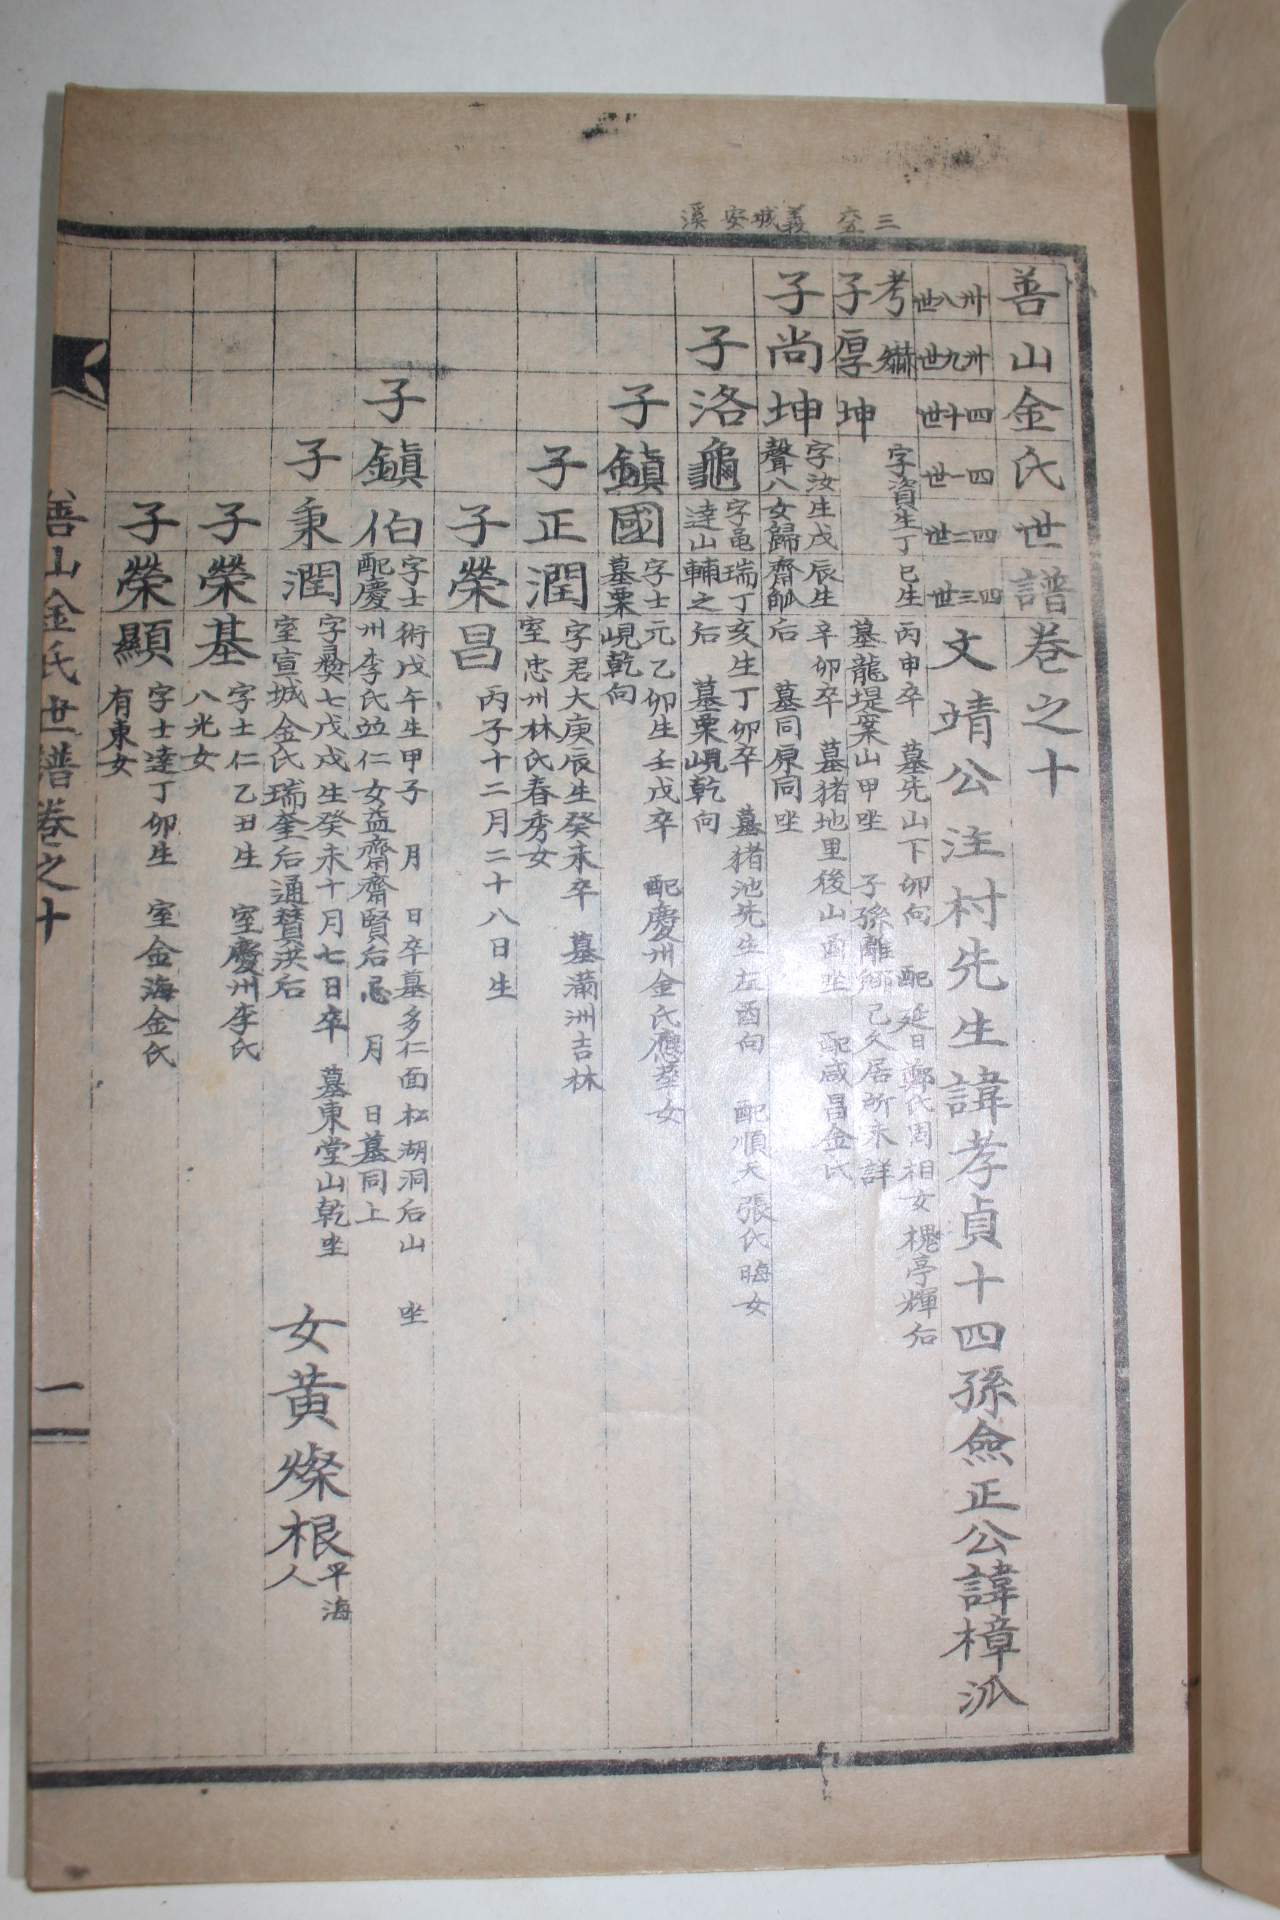 三 六五 義城安溪
善山金氏世譜卷之十
卅八世 卅九世 四十世 四一世 四二世 四三世
文靖公注村先生諱孝貞十四孫僉正公諱樟派
考 字資生丁巳生丙申卒 墓先山下卯向 配延日鄭氏周相女 槐亭輝后
子厚坤 墓龍堤案山甲坐 子孫離鄉已久居所未詳
子尚坤 字汝生戊辰生辛卯卒 墓猪地里後山酉坐 配咸昌金氏
聲八女歸齋 后 墓同原同坐
子洛龜 字亀瑞丁亥生丁卯卒 墓猪池先生左酉向 配順天張氏晦女
達山輔之后 墓栗峴乾向
子鎭國 字士元乙卯生壬戌卒 配慶州金氏應華女
墓栗峴乾向
子正潤 字君大庚辰生癸未卒 墓滿洲吉林
室忠州林氏春秀女
子榮昌 丙子十二月二十八日生
子鎭伯 字士術戊午生甲子 月 日卒墓多仁面松湖洞后山 坐
配慶州李氏竝仁女益齋齋賢后忌 月 日墓同上
子秉潤 字彛七戊戌生癸未十月七日卒 墓東堂山乾坐
室宣城金氏瑞奎后通贊洪后
女黃燦根 平海人
子榮基 字士仁乙丑生 室慶州李氏
八光女
子榮顯 字士達丁卯生 室金海金氏
有東女
善山金氏世譜卷之十 一